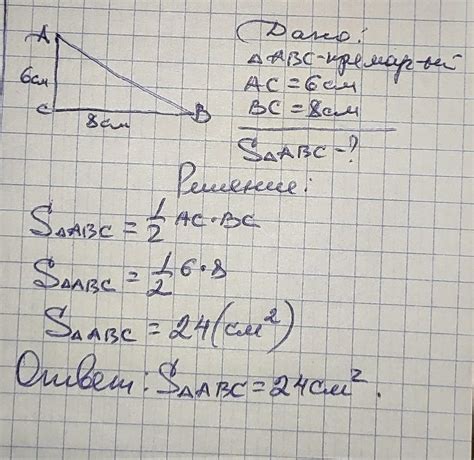 A
6см
C
8см
B
Дано:
△ABC-прямоуг-ый
AC=6см
BC=8см
S△ABC-?
Решение:
S△ABC=1/2 AC·BC
S△ABC=1/2 6·8
S△ABC=24(см²)
Ответ: S△ABC=24см².